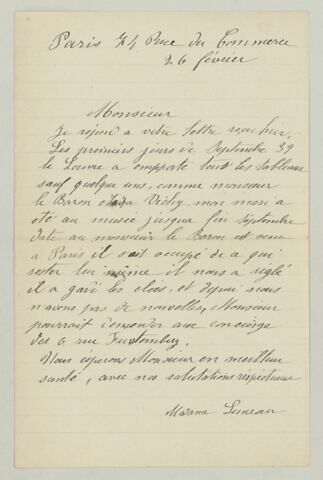 Paris 74 Rue du Commerce
26 février
Monsieur
Je répond a votre lettre reçu hier,
Les premiers jours de Septembre 39
le Louvre a emporté tout les tableaux
sauf quelque uns, comme monsieur
le Baron était a Vichy mon mari a
été au musée jusqua fin septembre
date ou monsieur le Baron est venu
a Paris il s'est occupé de a qui
rester lui même il nous a réglé
il a gardé les clées, et depuis nous
navons pas de nouvelles, Monsieur
pourrait demander aux concierge
des 6 rue Furstemberg.
Nous éspérons Monsieur en meilleur
santé, avec nos salutations respectueuse